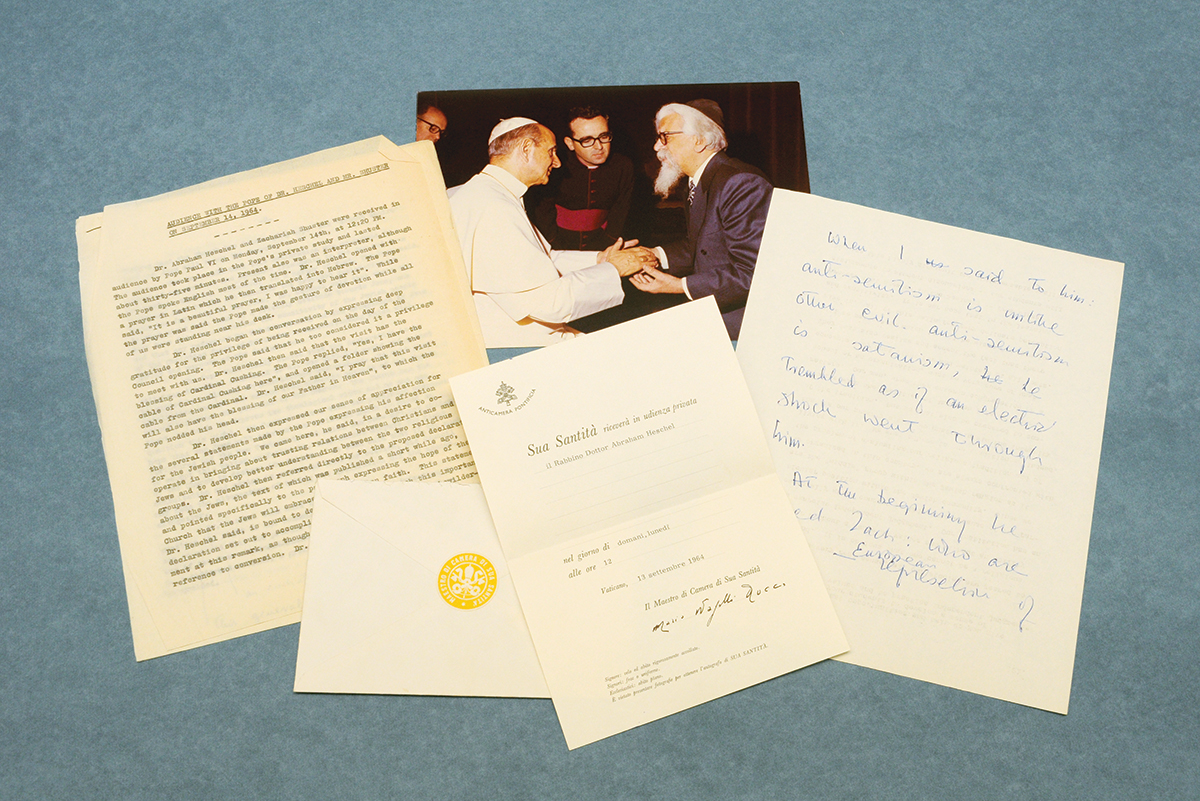 AUDIENCE WITH THE POPE OF DR. HESCHEL AND MR. SHUSTER
ON SEPTEMBER 14, 1964.
Dr. Abraham Heschel and Zachariah Shuster were received in
audience by Pope Paul VI on Monday, September 14th, at 12:20 PM.
The audience took place in the Pope's private study and lasted
about thirty-five minutes. Present also was an interpreter, although
the Pope spoke English most of the time. Dr. Heschel opened with
a prayer in Latin which he then translated into Hebrew. The Pope
said, "It is a beautiful prayer, I was happy to hear it". While
the prayer was said the Pope made the gesture of devotion while all
of us were standing near his desk.
Dr. Heschel began the conversation by expressing deep
gratitude for the privilege of being received on the day of the
Council opening. The Pope said that he too considered it a privilege
to meet with us. Dr. Heschel then said that the visit has the
blessing of Cardinal Cushing. The Pope replied, "Yes, I have the
cable of Cardinal Cushing here", and opened a folder showing the
cable from the Cardinal. Dr. Heschel said, "I pray that this visit
will also have the blessing of our Father in Heaven", to which the
Pope nodded his head.
Dr. Heschel then expressed our sense of appreciation for
the several statements made by the Pope expressing his affection
for the Jewish people. We came here, he said, in a desire to co-
operate in bringing about trusting relations between Christians and
Jews and to develop better understanding between the two religious
groups. Dr. Heschel then referred directly to the proposed
about the Jews, the text of which was published a short while ago,
and pointed specifically to the expressing the hope of the
Church that the Jews will faith. This
Dr. Heschel said, is bound to this important
declaration set out to
ment at this remark, as though
reference to conversion. Dr.
ANTICAMERA PONTIFICIA
Sua Santità riceverà in udienza privata
il Rabbino Dottor Abraham Heschel
nel giorno di domani, lunedì
alle ore 12
Vaticano, 13 settembre 1964
Il Maestro di Camera di Sua Santità
SUA SANTITÀ
MAESTRO DI CAMERA DI SUA SANTITÀ
When I said to him:
anti-semitism is unlike
other evil. anti-semitism
is satanism, he
trembled as if an electric
shock went through
him.
At the beginning he
ed Zach: Who are
European
of